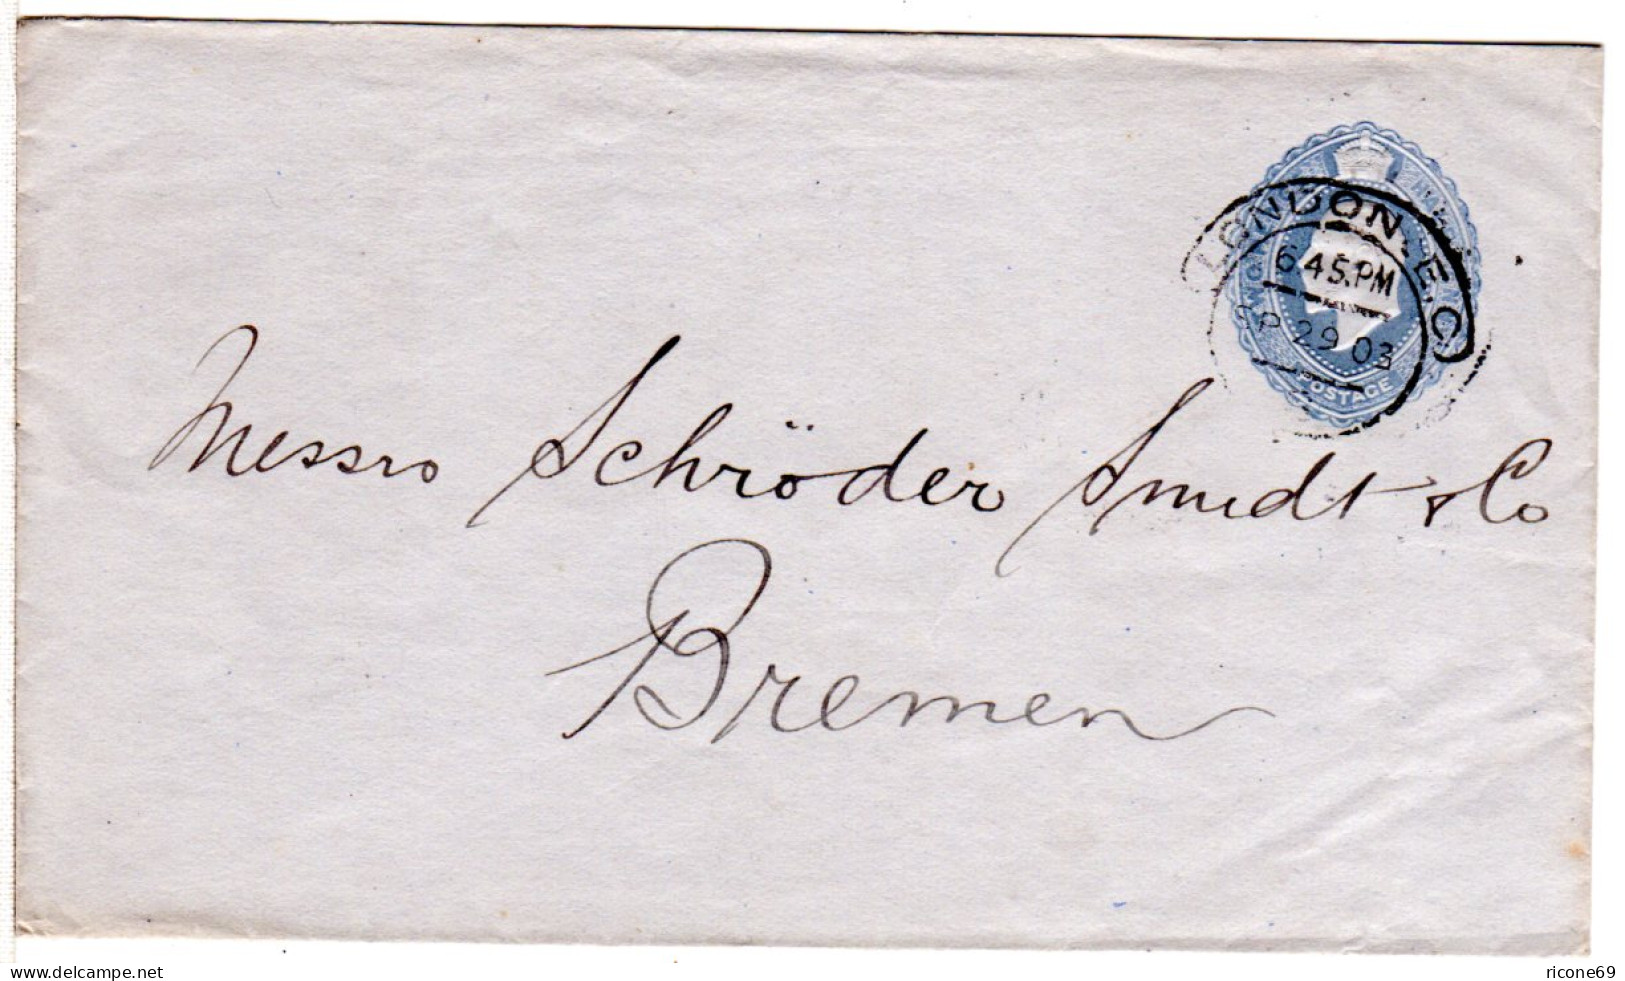 LONDON. E.C
6 45.PM
SP 29 03
POSTAGE
Messrs Schröder Smidt & Co
Bremen
delcampe.net
ricone69